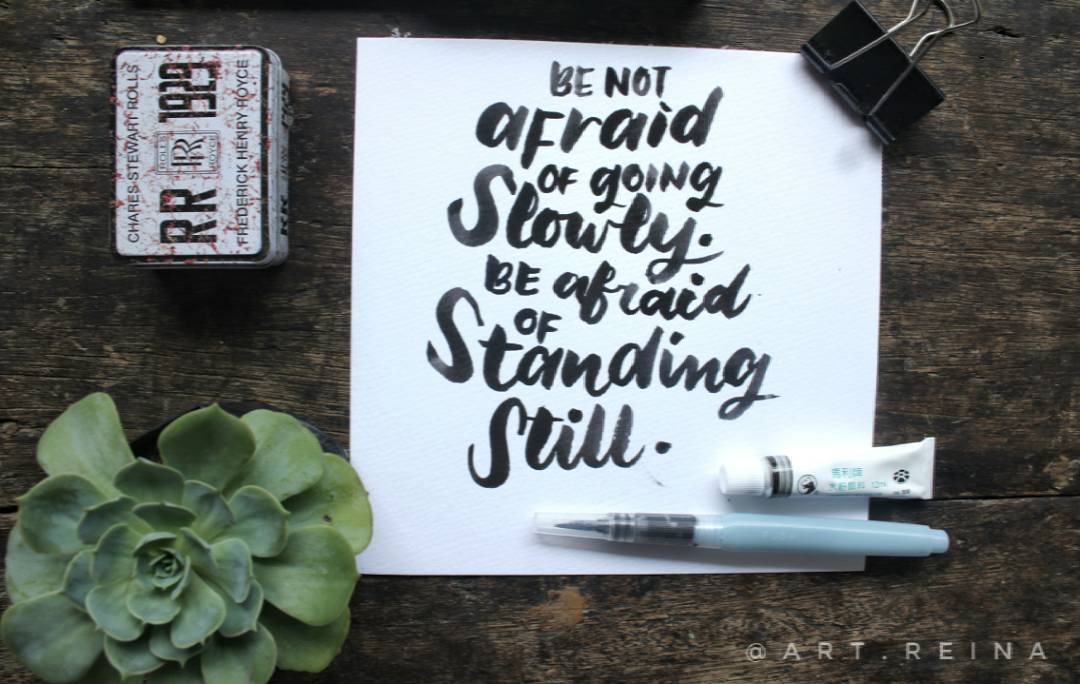 BE NOT
afraid
OF gOING
Slowly.
BE afraid
OF
Standing
Still.
CHARES STEWART ROLLS
RR
ROLLS
RR
ROYCE
1929
FREDERICK HENRY ROYCE
12ml
@ART.REINA